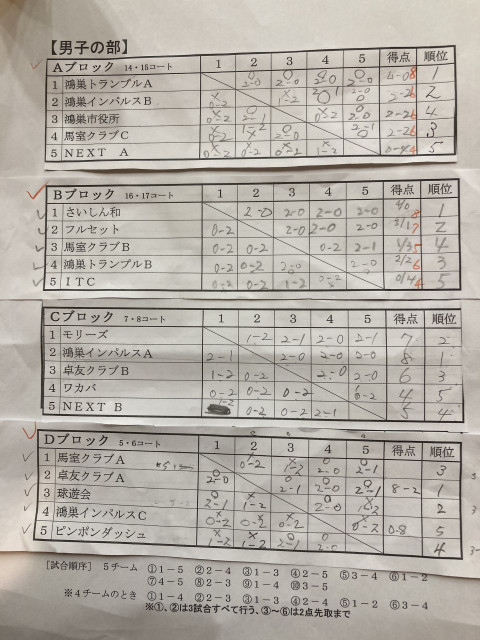 【男子の部】
Aブロック 14・15コート 1 2 3 4 5 得点 順位
1 鴻巣トランブルA 2-0 2-0 2-0 2-0 4-0 8 1
2 鴻巣インパルスB 0-2 1-2 2-1 2-0 2-2 6 2
3 鴻巣市役所 0-2 2-1 0-2 2-0 2-2 6 4
4 馬室クラブC 0-2 1-2 2-0 2-1 2-2 6 3
5 NEXT A 0-2 0-2 0-2 1-2 0-4 4 5
Bブロック 16・17コート 1 2 3 4 5 得点 順位
1 さいしん和 2-0 2-0 2-0 2-0 4/0 8 1
2 フルセット 0-2 2-0 2-0 2-0 3/1 7 2
3 馬室クラブB 0-2 0-2 0-2 2-1 1/3 5 4
4 鴻巣トランブルB 0-2 0-2 2-0 2-0 2/2 6 3
5 ITC 0-2 0-2 1-2 0-2 0/4 4 5
Cブロック 7・8コート 1 2 3 4 5 得点 順位
1 モリーズ 1-2 2-1 2-0 2-1 7 2
2 鴻巣インパルスA 2-1 2-0 2-0 2-0 8 1
3 卓友クラブB 1-2 0-2 2-0 2-0 6 3
4 ワカバ 0-2 0-2 0-2 4 5
5 NEXT B 1-2 0-2 0-2 2-1 5 4
Dブロック 5・6コート 1 2 3 4 5 得点 順位
1 馬室クラブA 0-2 1-2 2-0 2-1 3
2 卓友クラブA 2-0 2-1 2-0 2-1 8-2 1
3 球遊会 2-1 1-2 2-0 2
4 鴻巣インパルスC 0-2 0-2 0-2 0-2 0-8 5
5 ピンポンダッシュ 1-2 1-2 2-1 2-0 4
［試合順序］ 5チーム ①1－5 ②2－4 ③1－3 ④2－5 ⑤3－4 ⑥1－2
⑦4－5 ⑧2－3 ⑨1－4 ⑩3－5
※4チームのとき ①1－4 ②2－3 ③1－3 ④2－4 ⑤1－2 ⑥3－4
※①、②は3試合すべて行う、③～⑥は2点先取まで